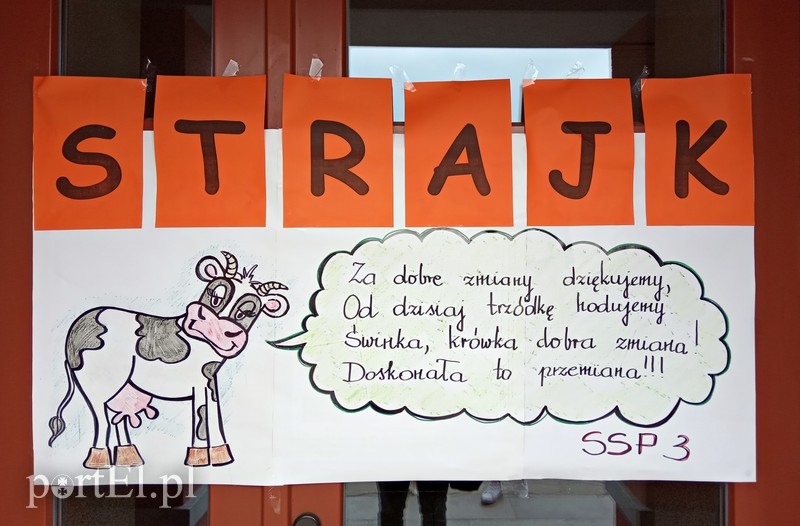 STRAJK
Za dobre zmiany dziękujemy,
Od dzisiaj trzódkę hodujemy
Świnka, krówka dobra zmiana!
Doskonała to przemiana!!!
SSP 3
portEl.pl